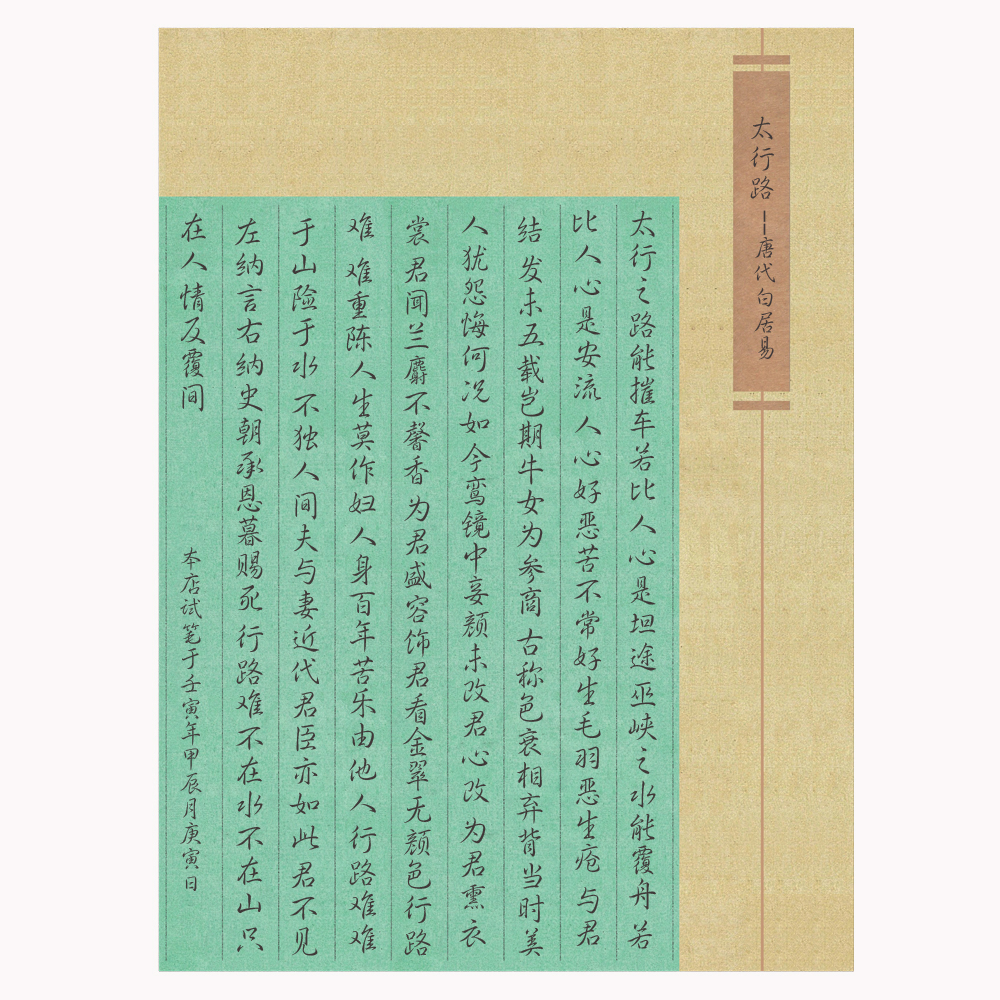 太行路——唐代白居易
太行之路能摧车若比人心是坦途巫峡之水能覆舟若
比人心是安流人心好恶苦不常好生毛羽恶生疮与君
结发未五载岂期牛女为参商古称色衰相弃背当时美
人犹怨悔何况如今鸾镜中妾颜未改君心改为君熏衣
裳君闻兰麝不馨香为君盛容饰君看金翠无颜色行路
难难重陈人生莫作妇人身百年苦乐由他人行路难难
于山险于水不独人间夫与妻近代君臣亦如此君不见
左纳言右纳史朝承恩暮赐死行路难不在水不在山只
在人情反覆间
本店试笔于壬寅年甲辰月庚寅日